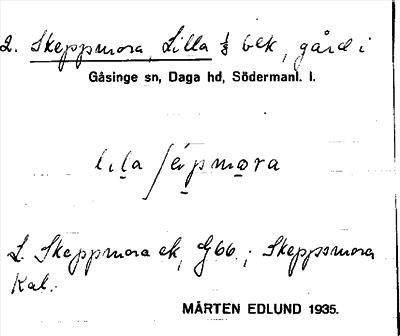 2. Skeppmora, Lilla ⅓ bek, gård i
Gåsinge sn, Daga hd, Södermanl. l.
lɩla ʃépmora
L. Skeppmora ek, G66.; Skeppsmora
Kal.
MÅRTEN EDLUND 1935.